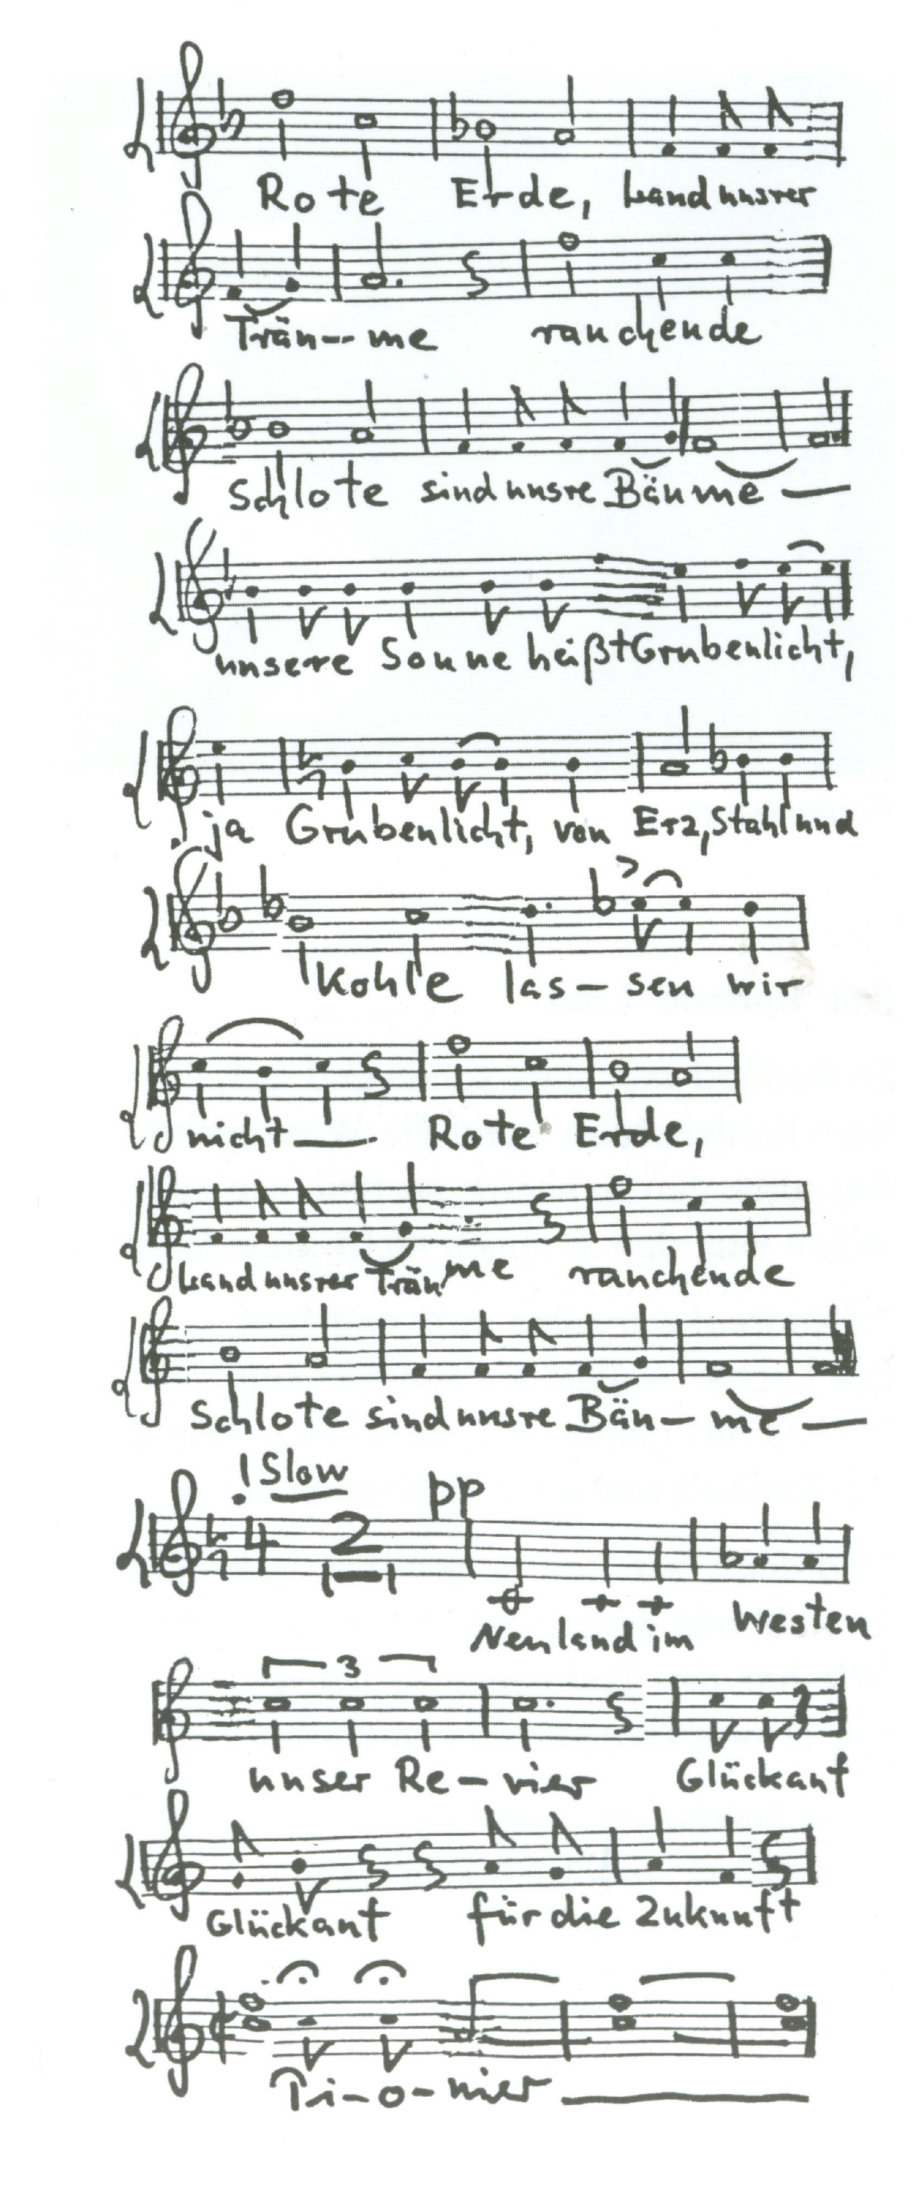 Rote Erde, Land unsrer
Träu-- me rauchende
Schlote sind unsre Bäume —
unsere Sonne heißt Grubenlicht,
ja Grubenlicht, von Erz, Stahl und
Kohle las – sen wir
nicht — Rote Erde,
Land unsrer Träume rauchende
Schlote sind unsre Bäu – me —
! Slow
4 2 pp
Neuland im Westen
3
unser Re – vier Glückauf
Glückauf für die Zukunft
2
Pi – o – nier —